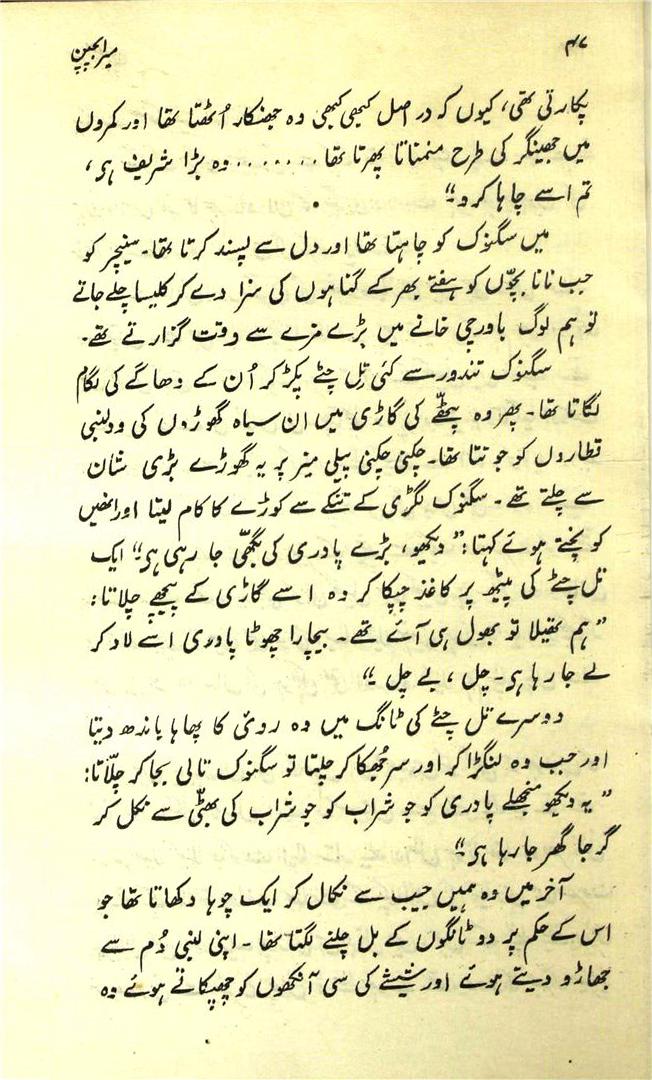 ۴۷ میرا بچپن
پکارتی تھی، کیوں کہ در اصل کبھی کبھی وہ جھنکار اُٹھتا تھا اور کمروں
میں جھینگر کی طرح منمناتا پھرتا تھا ....... وہ بڑا شریف ہی،
تم اسے چاہا کرو۔“
میں سگنوک کو چاہتا تھا اور دل سے پسند کرتا تھا۔ سنیچر کو
جب نانا بچّوں کو ہفتے بھر کے گناہوں کی سزا دے کر کلیسا چلے جاتے
تو ہم لوگ باورچی خانے میں بڑے مزے سے وقت گزارتے تھے۔
سگنوک تندور سے کئی تِل چٹے پکڑ کر اُن کے دھاگے کی لگام
لگاتا تھا۔ پھر وہ پٹھّے کی گاڑی میں ان سیاہ گھوڑوں کی دو لنبی
قطاروں کو جوتتا تھا۔ چکنی چکنی پیلی میز پر یہ گھوڑے بڑی شان
سے چلتے تھے۔ سگنوک لکڑی کے تنکے سے کوڑے کا کام لیتا اور انھیں
کوچتے ہوئے کہتا: ”دیکھو، بڑے پادری کی بگھّی جا رہی ہی“ ایک
تل چٹے کی پیٹھ پر کاغذ چپکا کر وہ اسے گاڑی کے پیچھے چلاتا:
”ہم تھیلا تو بھول ہی آئے تھے۔ بیچارا چھوٹا پادری اسے لاد کر
لے جا رہا ہی۔ چل، بے چل۔“
دوسرے تل چٹے کی ٹانگ میں وہ روئی کا پھاہا باندھ دیتا
اور جب وہ لنگڑا کر اور سر جُھکا کر چلتا تو سگنوک تالی بجا کر چلّاتا:
”یہ دیکھو منجھلے پادری کو جو شراب کو جو شراب کی بھٹّی سے نکل کر
گرجا گھر جا رہا ہی“
آخر میں وہ ہمیں جیب سے نکال کر ایک چوہا دکھاتا تھا جو
اس کے حکم پر دو ٹانگوں کے بل چلنے لگتا تھا۔ اپنی لنبی دُم سے
جھاڑو دیتے ہوئے اور شیشے کی سی آنکھوں کو جھپکاتے ہوئے وہ